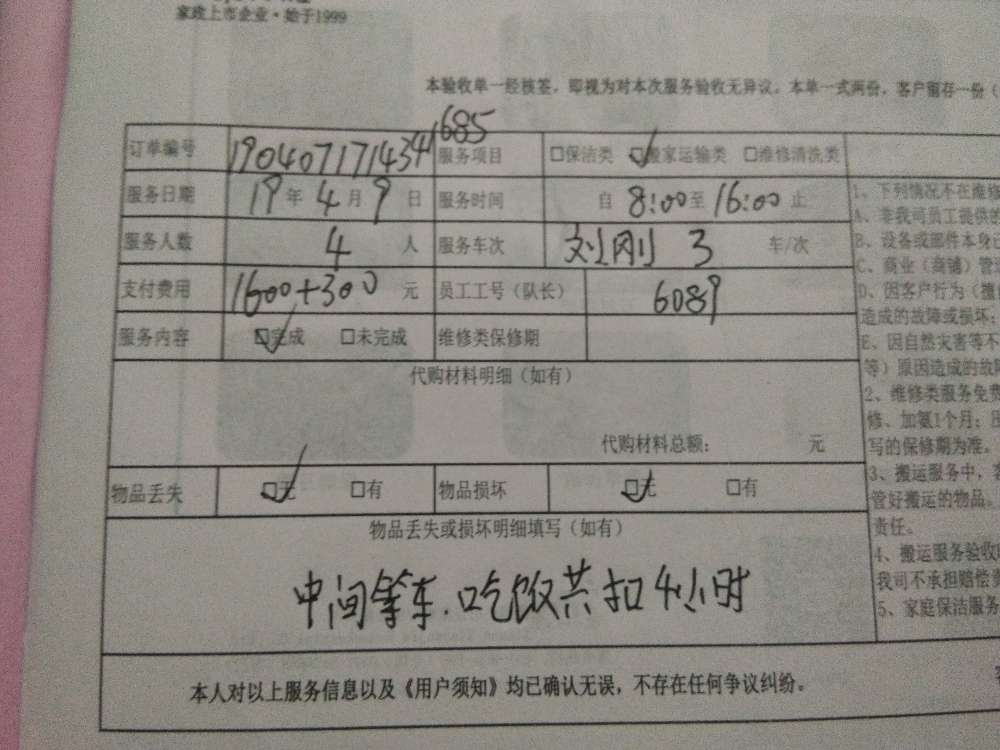 家政上市企业·始于1999
本验收单一经核签，即视为对本次服务验收无异议。本单一式两份，客户留存一份（
订单编号 1904071714341685 服务项目 □保洁类 ☑搬家运输类 □维修清洗类
服务日期 19年4月9日 服务时间 自8:00至16:00止
服务人数 4人 服务车次 刘刚 3 车/次
支付费用 1600+300元 员工工号（队长） 6089
服务内容 ☑完成 □未完成 维修类保修期
代购材料明细（如有）
代购材料总额： 元
物品丢失 ☑无 □有 物品损坏 ☑无 □有
物品丢失或损坏明细填写（如有）
中间等车.吃饭共扣4小时
本人对以上服务信息以及《用户须知》均已确认无误，不存在任何争议纠纷。
1、下列情况不在维修
A、非我司员工提供的
B、设备或部件本身
C、商业（商铺）管道
D、因客户行为（擅自
造成的故障或损坏；
E、因自然灾害等不
等）原因造成的故障
2、维修类服务免费
修、加氨1个月；
写的保修期为准。
3、搬运服务中，
管好搬运的物品。
责任。
4、搬运服务验收
我司不承担赔偿责
5、家庭保洁服务